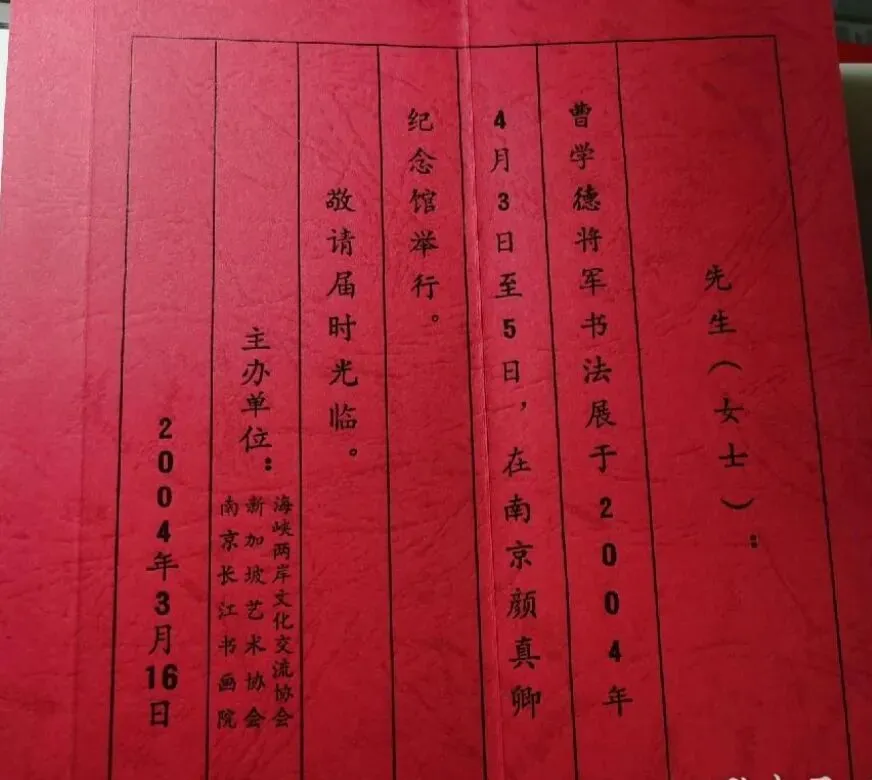 先生（女士）：
曹学德将军书法展于2004年
4月3日至5日，在南京颜真卿
纪念馆举行。
敬请届时光临。
主办单位：
海峡两岸文化交流协会
新加坡艺术协会
南京长江书画院
2004年3月16日